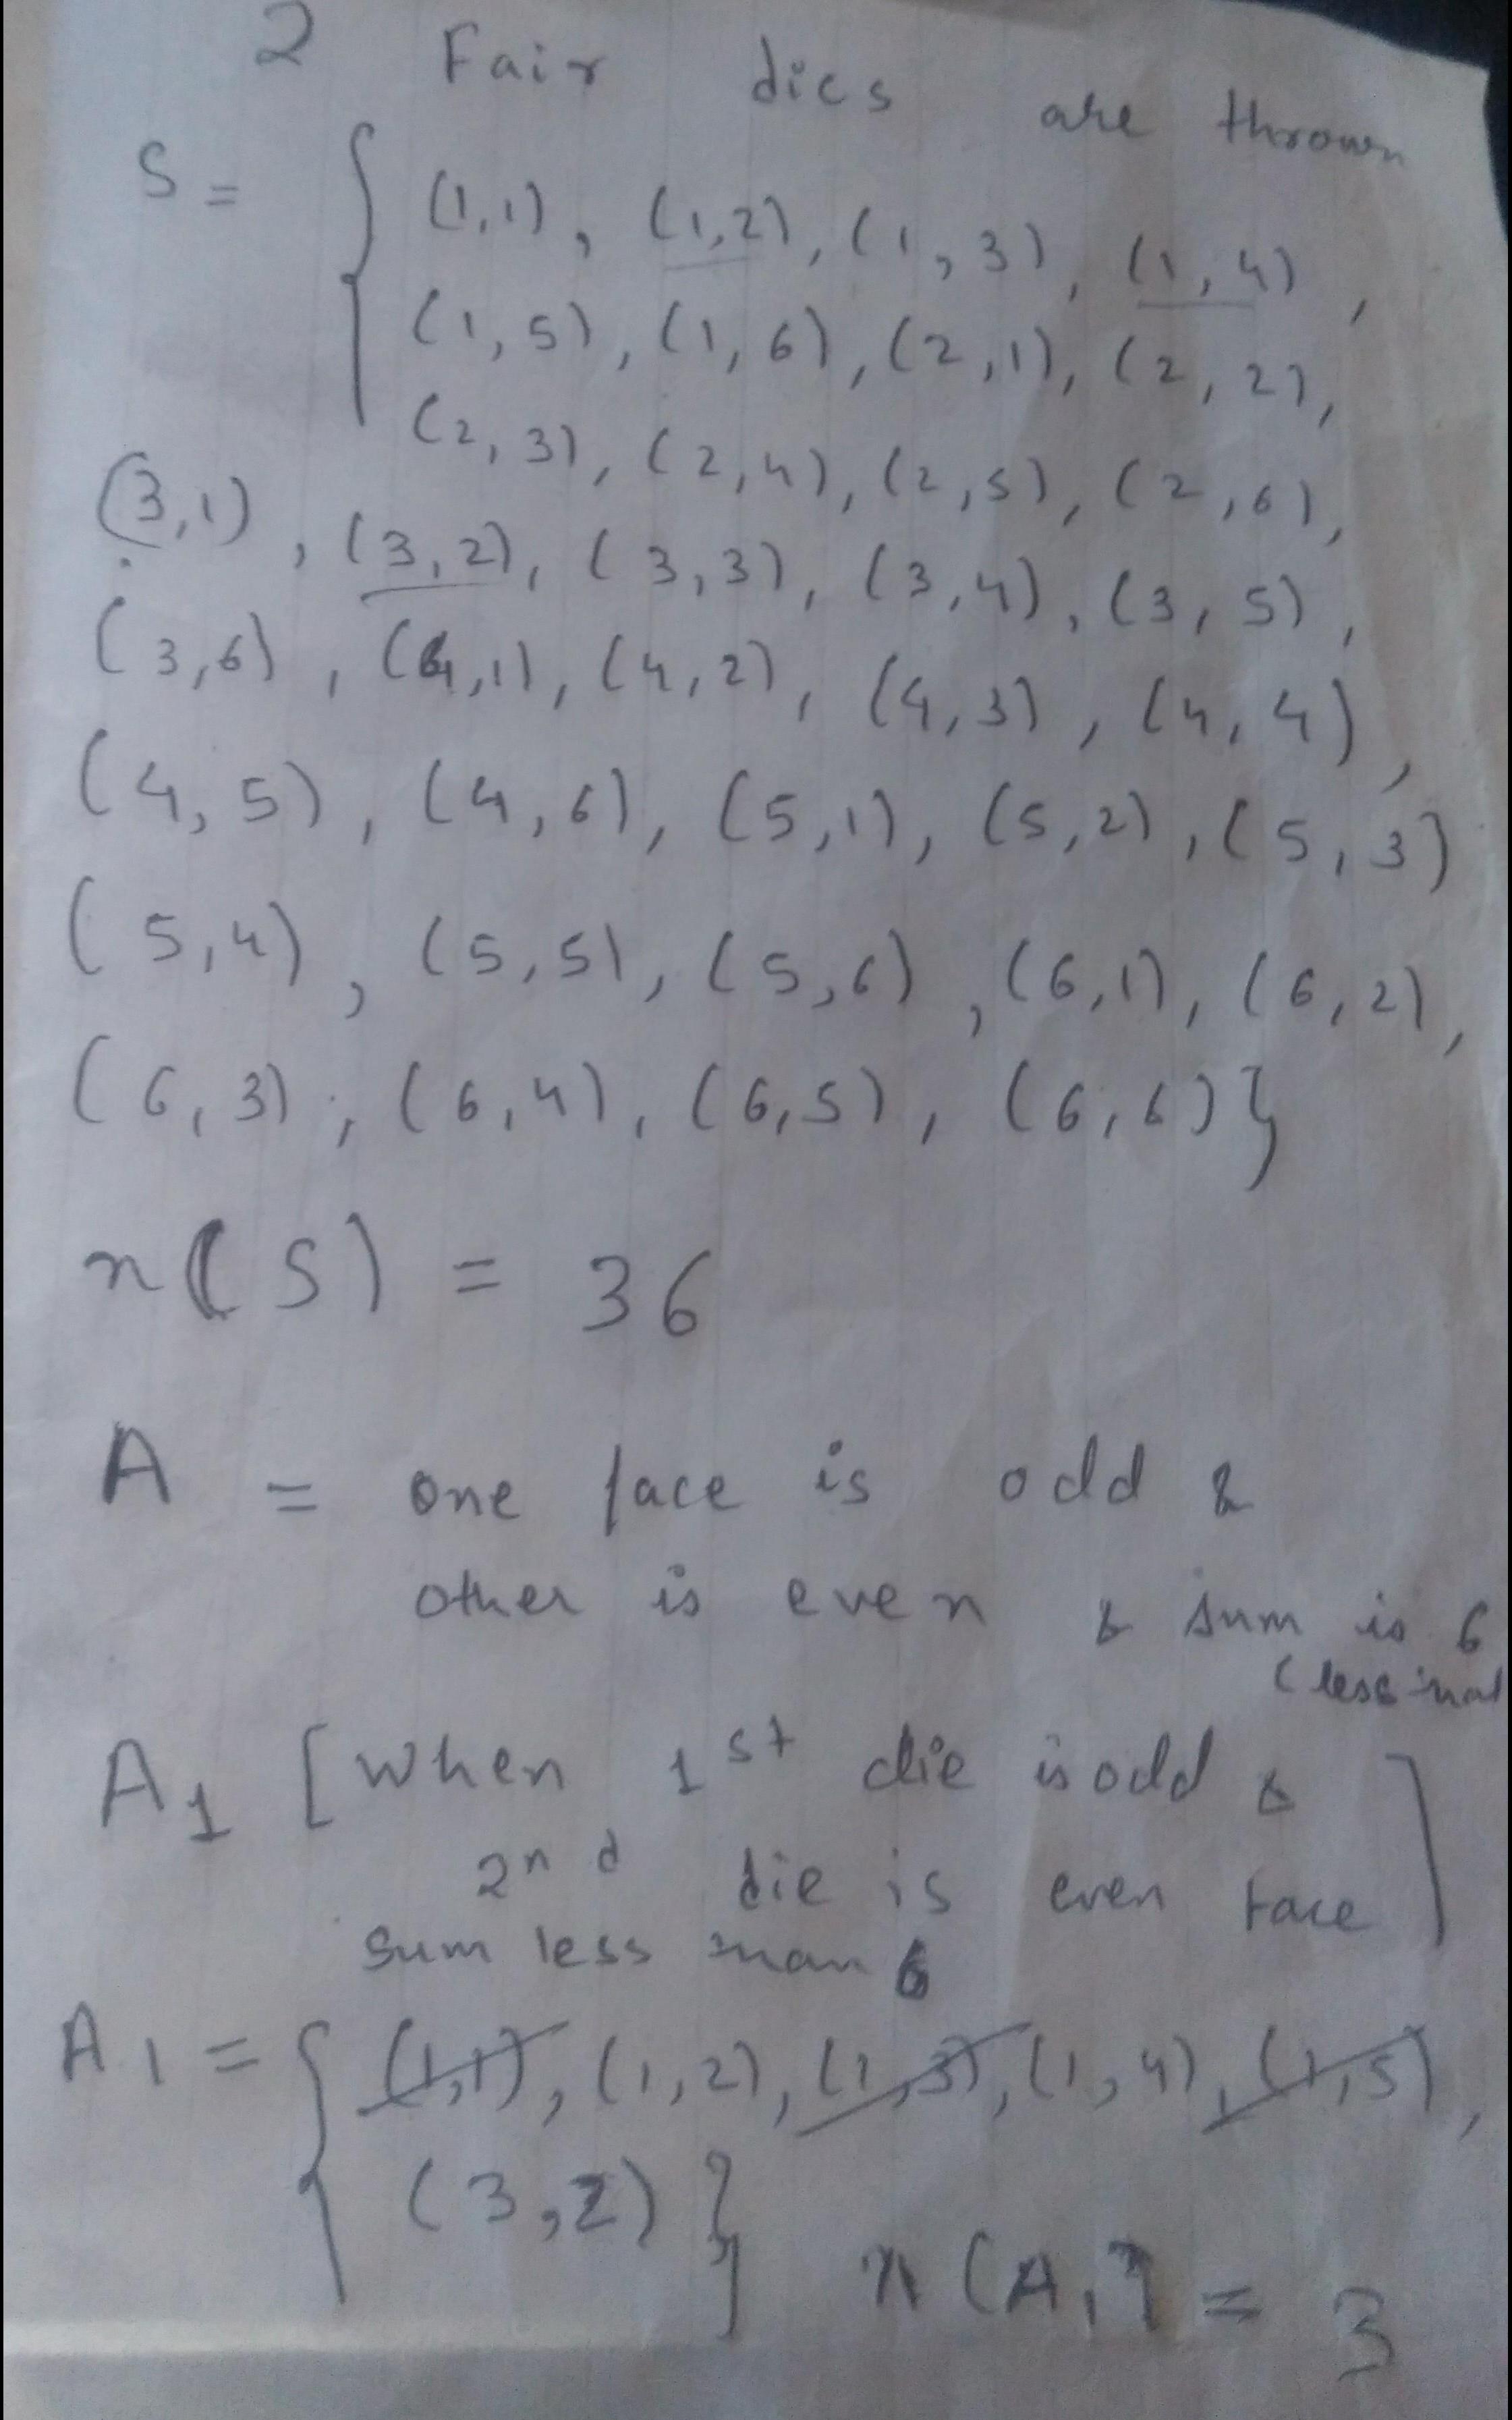 2 Fair dies are thrown
S = { (1,1), (1,2), (1,3), (1,4),
(1,5), (1,6), (2,1), (2,2),
(2,3), (2,4), (2,5), (2,6),
(3,1), (3,2), (3,3), (3,4), (3,5),
(3,6), (4,1), (4,2), (4,3), (4,4),
(4,5), (4,6), (5,1), (5,2), (5,3)
(5,4), (5,5), (5,6), (6,1), (6,2),
(6,3), (6,4), (6,5), (6,6)}
n(S) = 36
A = one face is odd &
other is even & sum is 6
(less than
A1 [When 1st die is odd &
2nd die is even face]
sum less than 6
A1 = { (1,1), (1,2), (1,3), (1,4), (1,5),
(3,2) }
n(A1) = 3